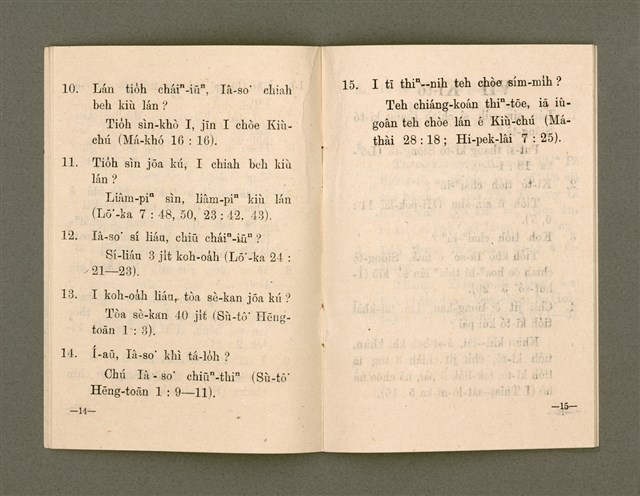 10. Lán tio̍h cháiⁿ-iūⁿ, Iâ-so͘ chiah
beh kiù lán ?
Tio̍h sìn-khò I, jīn I chòe Kiù-
chú (Má-khó 16 : 16).
11. Tio̍h sìn jōa kú, I chiah beh kiù
lán ?
Liâm-piⁿ sìn, liâm-piⁿ kiù lán
(Lō͘-ka 7 : 48, 50, 23 : 42, 43).
12. Iâ-so͘ sí liáu, chiū cháiⁿ-iūⁿ ?
Sí-liáu 3 ji̍t koh-oa̍h (Lō͘-ka 24 :
21—23).
13. I koh-oa̍h liáu, tòa sè-kan jōa kú ?
Tòa sè-kan 40 ji̍t (Sù-tô͘ Hēng-
toān 1 : 3).
14. Í-aū, Iâ-so͘ khì tá-lo̍h ?
Chú Iâ-so͘ chiūⁿ-thiⁿ (Sù-tô͘
Hēng-toān 1 : 9—11).
—14—
15. I tī thiⁿ--nih teh chòe sím-mi̍h ?
Teh chiáng-koán thiⁿ-tōe, iā iù-
goân teh chòe lán ê Kiù-chú (Má-
thài 28 : 18 ; Hi-pek-lâi 7 : 25).
—15—